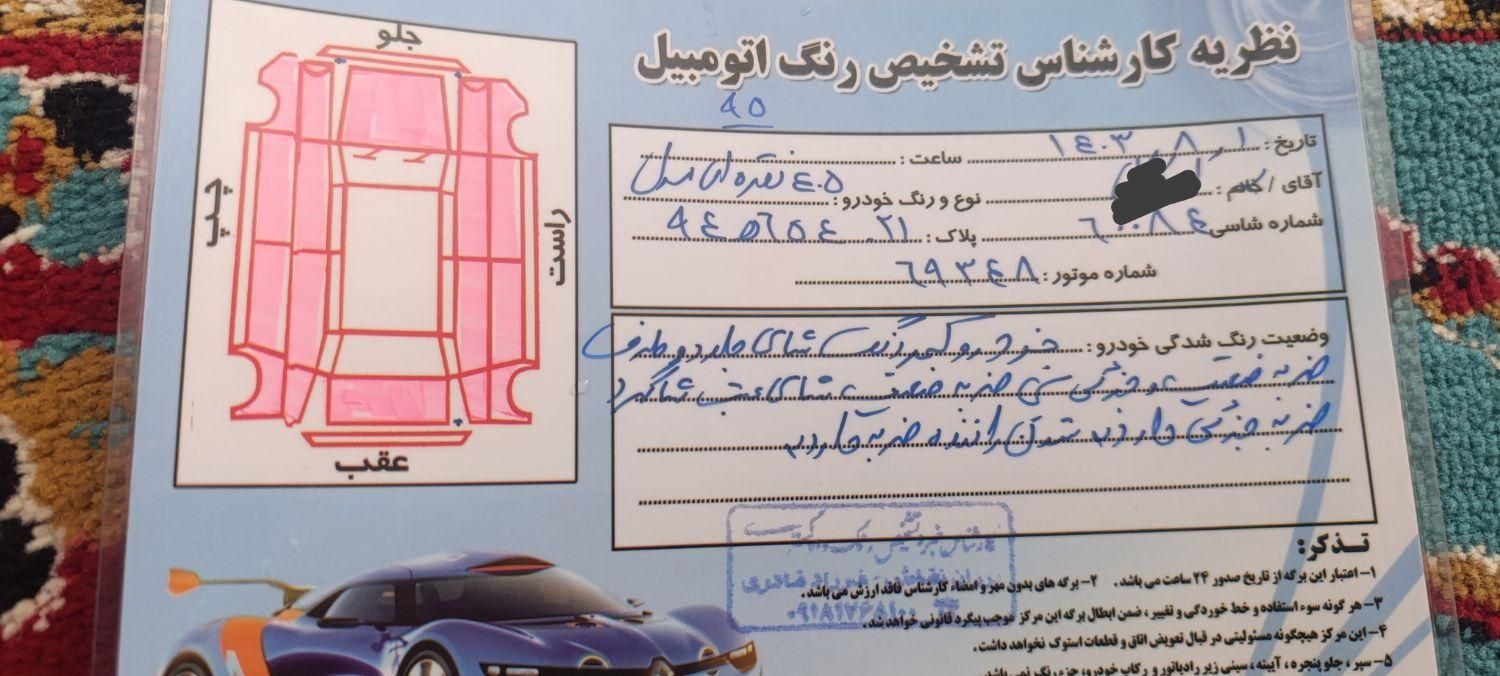 نظریه کارشناس تشخیص رنگ اتومبیل
۹۵
تاریخ : ۱۴۰۳٫۸٫۱ ساعت :
آقای / خانم : نوع و رنگ خودرو : ۴۰۵ نقره ای
شماره شاسی ۶۰۰۸۴ پلاک : ۲۱ ۹۴۵۶۵۴
شماره موتور : ۶۹۳۴۸
وضعیت رنگ شدگی خودرو : خودرو دور رنگ شاسی جلو دو طرف
ضربه خفیف و خوردگی ضربه خفیف شاسی عقب شاگرد
ضربه جزئی دارد ستون راننده ضربه دارد
جلو
چپ
راست
عقب
کارشناس فنی تشخیص رنگ
۰۹۱۸۱۷۶۸۱۰۰
تـذکر:
۱- اعتبار این برگه از تاریخ صدور ۲۴ ساعت می باشد. ۲- برگه های بدون مهر و امضاء کارشناس فاقد ارزش می باشد.
۳- هر گونه سوء استفاده و خط خوردگی و تغییر، ضمن ابطال برگه این مرکز موجب پیگرد قانونی خواهد شد.
۴- این مرکز هیچگونه مسئولیتی در قبال تعویض اتاق و قطعات استوک نخواهد داشت.
۵- سپر، جلو پنجره، آیینه، سینی زیر رادیاتور و رکاب خودرو، جزء رنگ نمی باشد.